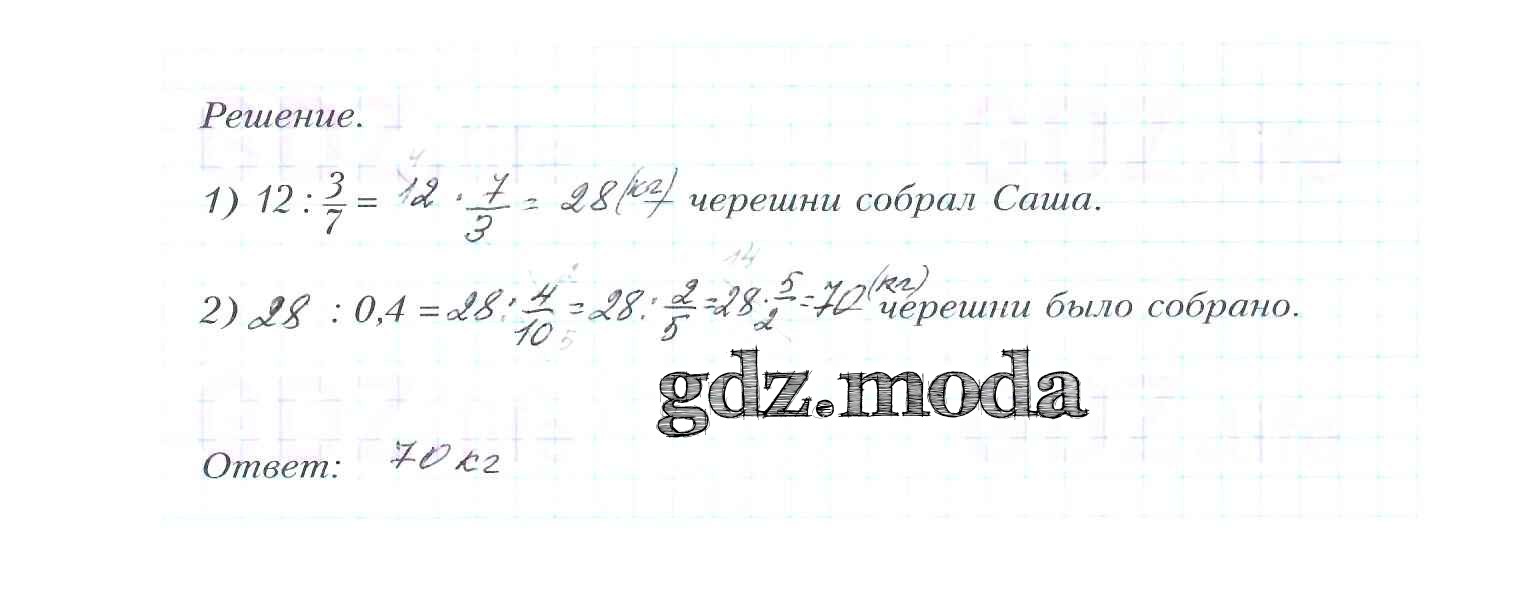 Решение.
1) 12 : 3/7 = 12 · 7/3 = 28 (кг) черешни собрал Саша.
2) 28 : 0,4 = 28 : 4/10 = 28 : 2/5 = 28 · 5/2 = 70 (кг) черешни было собрано.
gdz.moda
Ответ: 70 кг